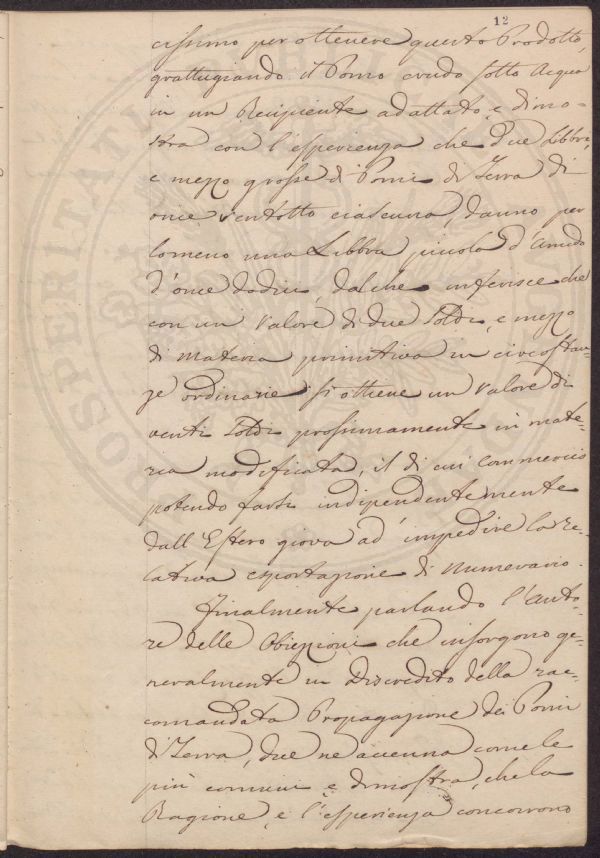 12
cissimo per ottenere questo Prodotto,
grattugiando il Pomo crudo sotto Acqua
in un Recipiente adattato, e dimo-
stra con l'esperienza che due Libbre,
e mezzo grosse di Pomi di Terra di
once ventotto ciascuna, danno per
lo meno una Libbra piccola d'Amido
d'once dodici, dal che inferisce che
con un valore di due Soldi, e mezzo
di materia primitiva in circostan-
ze ordinarie si ottiene un valore di
venti Soldi prossimamente in mate-
ria modificata, il di cui Commercio
potendo farsi indipendentemente
dall'Estero giova ad impedire la re-
lativa esportazione di Numerario.
Finalmente parlando l'Auto-
re delle Obiezioni che insorgono ge-
neralmente in Discredito della rac-
comandata Propagazione dei Pomi
di Terra, due ne accenna come le
più comuni e dimostra, che la
Ragione, e l'esperienza concorrono
PROSPERITATI PUBLI